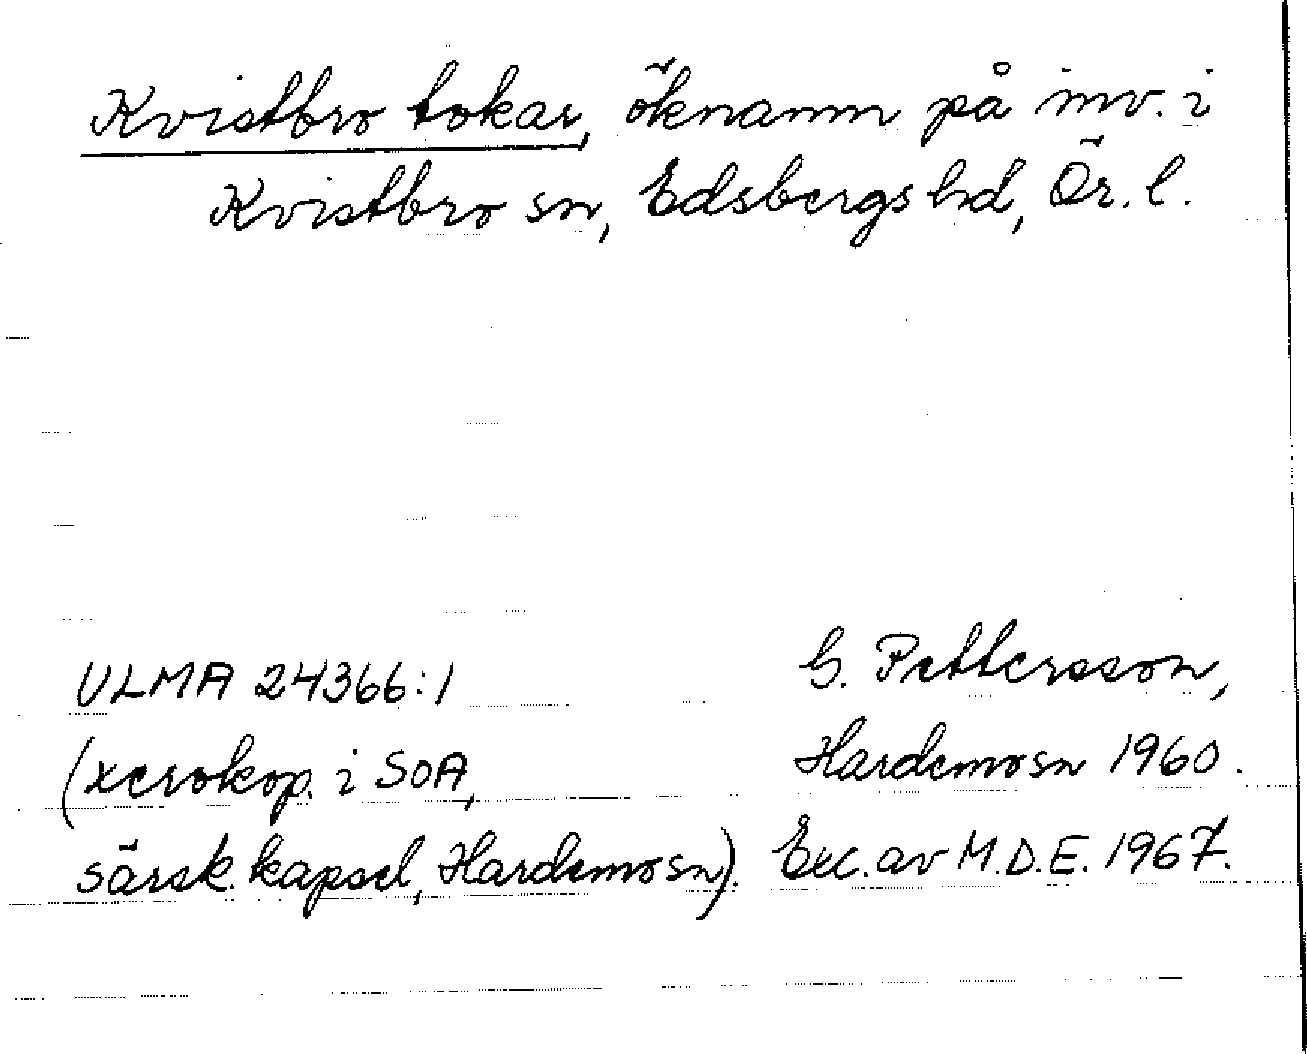 Kvistbro tokar, öknamn på inv. i
Kvistbro sn, Edsbergs hd, Ör. l.
ULMA 24366:1
G. Pettersson,
(xerokop. i SOA,
Hardemo sn 1960.
särsk. kapsel, Hardemo sn).
Exc. av M.D.E. 1967.